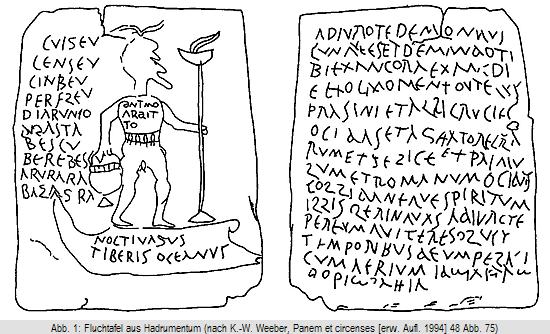 CVIGEV
CENSEV
CINBEV
PERFLEV
DIARVNCO
DEASTA
BESCV
BEREBESCV
ARVRARA
BAZAGRA
ANTMO
ARAIT
TO
NOCTIVAGVS
TIBERIS OCEANVS
ADIVROTE DEMON QVI
CVNQVE ES ET DEMANDO TI
BI EX ANC ORA EX ANC DI
E EX OC MOMENTO VT EQVOS
PRASINI ET ALBI CRVCIES
OCIDAS ET AGITATORE CLA
RVM ET FELICE ET PRIMV
LVM ET ROMANVM OCIDAS
COLLIDA NEQVE SPIRITVM
ILLIS LERINQVAS ADIVRO TE
PER EVM QVI TE RESOLVIT
TEMPORIBVS DEVM PELAGI
CVM AERIVM
Abb. 1: Fluchtafel aus Hadrumentum (nach K.-W. Weeber, Panem et circenses [erw. Aufl. 1994] 48 Abb. 75)